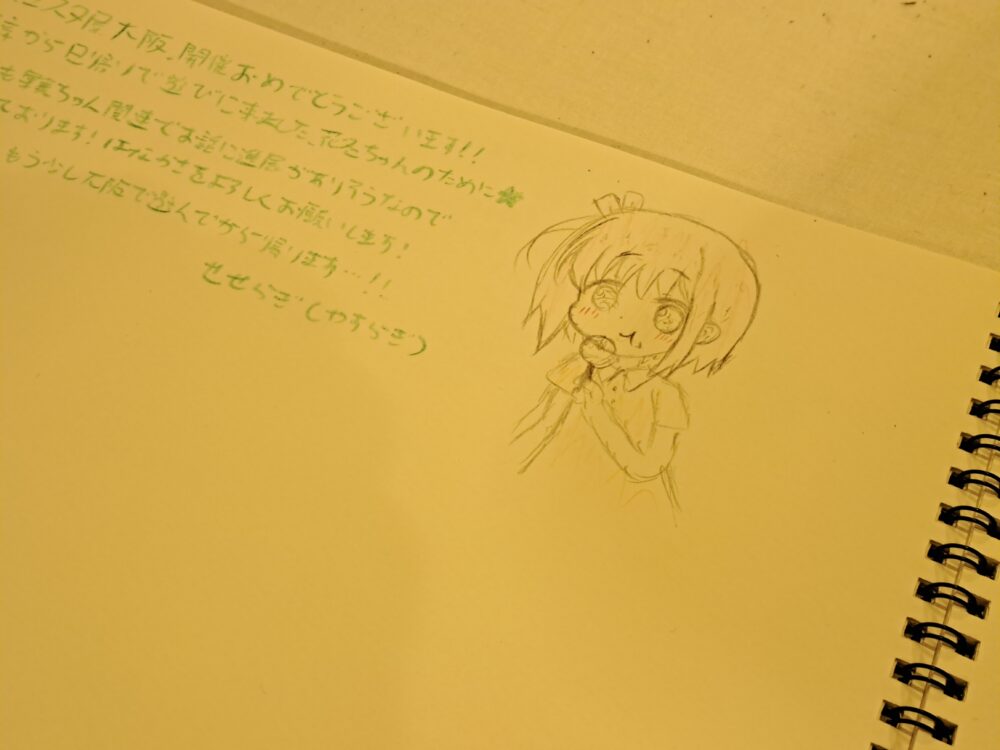 ニスタ展大阪、開催おめでとうございます!!
から日帰りで遊びに来ました、花冬ちゃんのために★
ちゃん関連でお話に進展がありそうなので
ております!はなかさをよろしくお願いします!
もう少し大阪で遊んでから帰ります…!!
せせらぎ(やすらぎ)